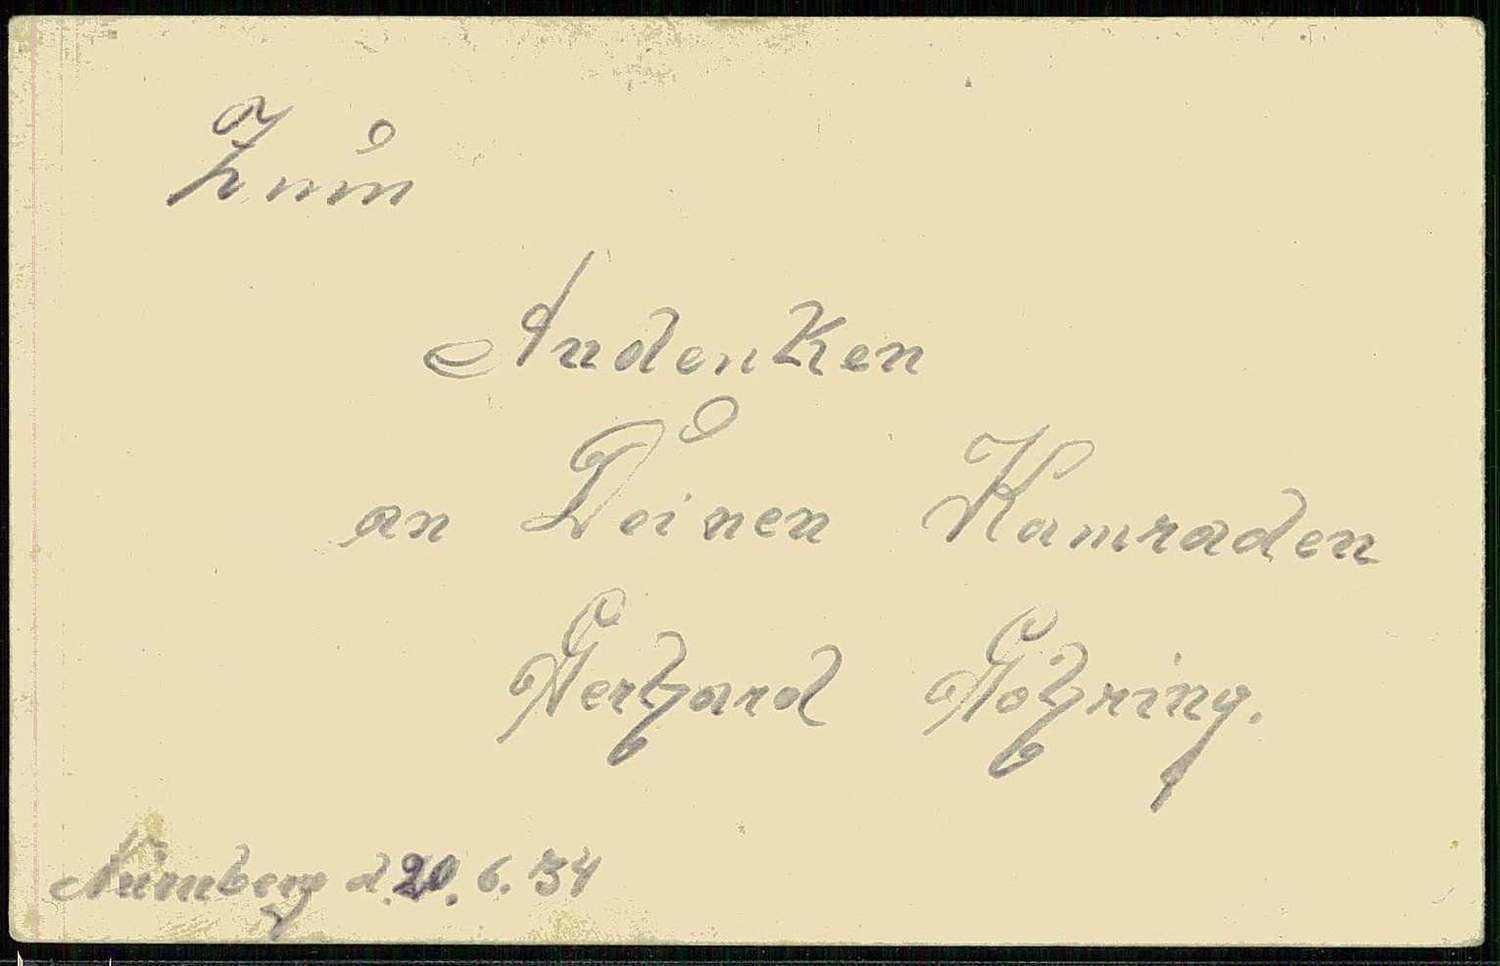 Zum
Andenken
an Deinen Kamraden
Gerhard Göhring.
Nürnberg d. 20. 6. 34